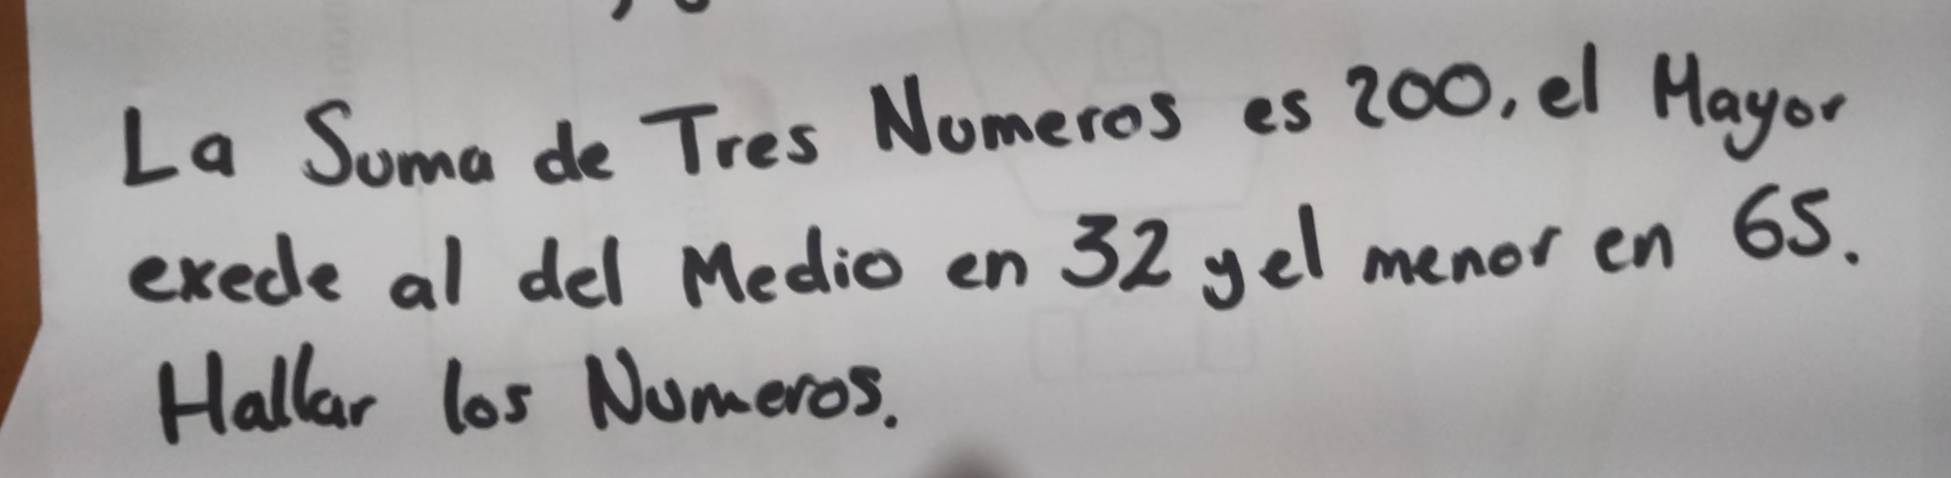 La Suma de Tres Numeros es 200, el Mayor
exede al del Medio en 32 y el menor en 65.
Hallar los Numeros.